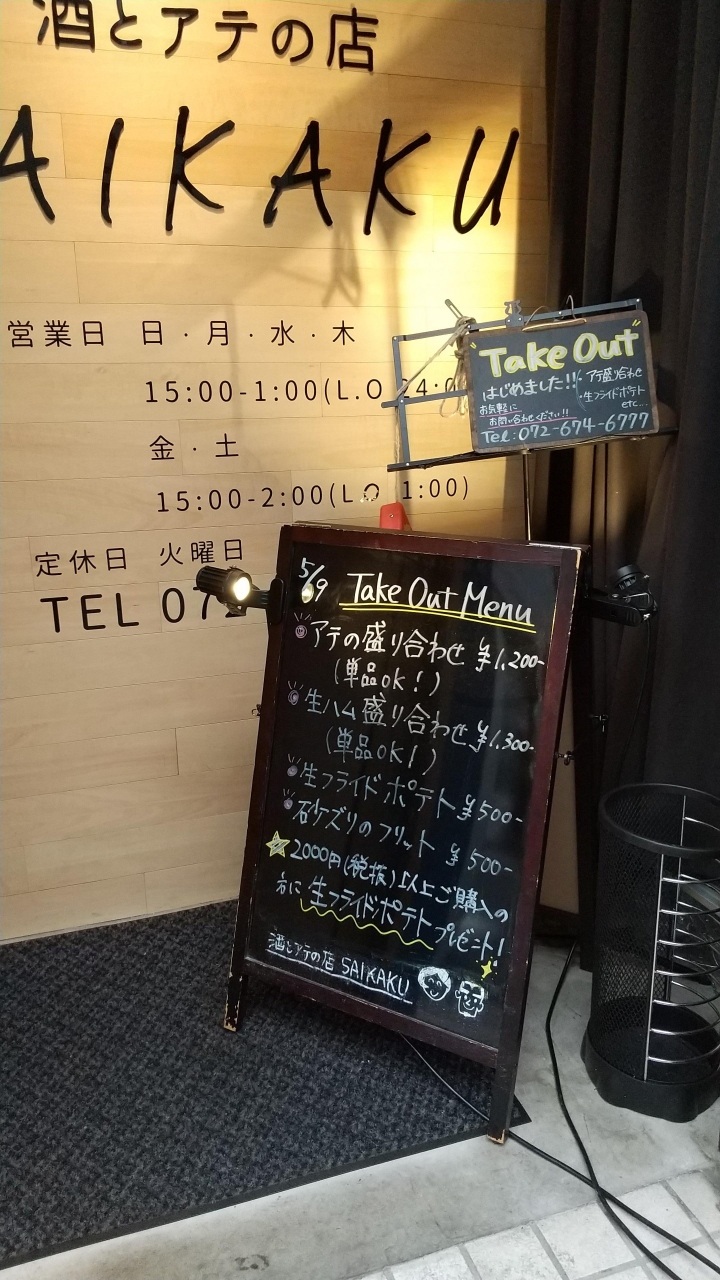 酒とアテの店
AIKAKU
営業日 日・月・水・木
15:00-1:00(L.O 24:0
金・土
15:00-2:00(L.O 1:00)
定休日 火曜日
TEL 072
"Take Out"
はじめました!!
・アテ盛り合わせ
・生フライドポテト
etc...
お気軽に
お問い合わせください!!
Tel:072-674-6777
5/9 Take Out Menu
アテの盛り合わせ ¥1,200-
(単品OK!)
生ハム盛り合わせ ¥1,300-
(単品OK!)
生フライドポテト ¥500-
砂ケズリのフリット ¥500-
☆2000円(税抜)以上ご購入の
方に生フライドポテトプレゼント!
酒とアテの店 SAIKAKU